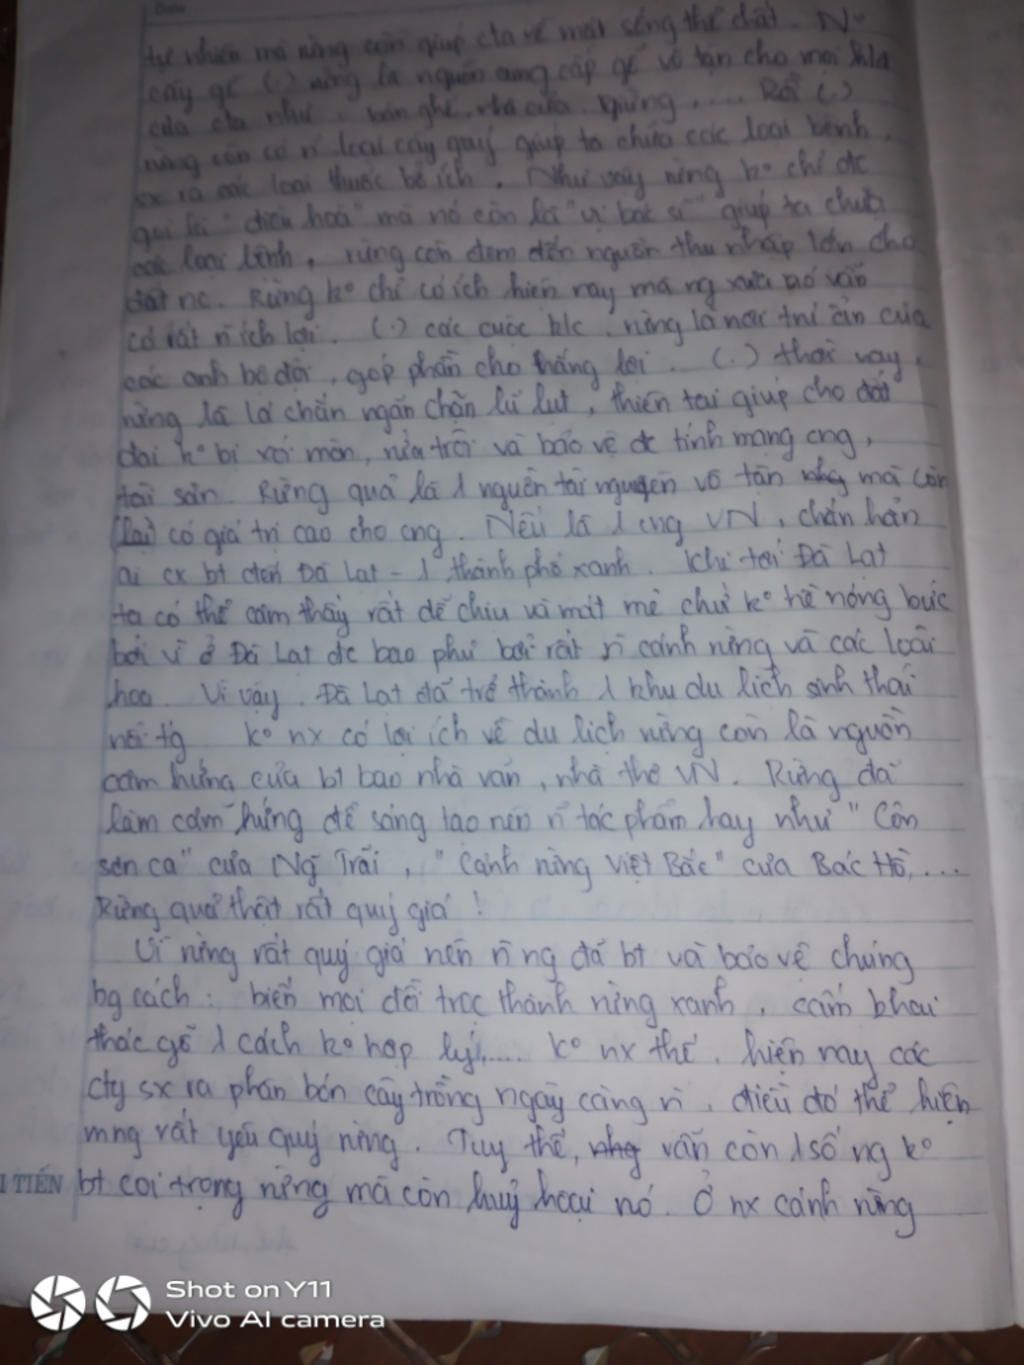 tự nhiên mà rừng còn giúp cta về mặt sống thể chất. N°
cây gỗ (.) rừng là nguồn cung cấp gỗ vô tận cho mọi
của cta như: bàn ghế, nhà cửa, .... Rồi (.)
rừng còn có n̄ loại cây quý giúp ta chữa các loại bệnh,
sx ra các loại thuốc bổ ích. Như vậy rừng k° chỉ đc
gọi là "điều hoà" mà nó còn là "vị bác sĩ" giúp ta chữa
các loại bệnh, rừng còn đem đến nguồn thu nhập lớn cho
đất nc. Rừng k° chỉ có ích hiện nay mà ng xưa nó vẫn
có rất n̄ ích lợi. (.) các cuộc k/c, rừng là nơi trú ẩn của
các anh bộ đội, góp phần cho thắng lợi. (.) thời nay,
rừng là lá chắn ngăn chặn lũ lụt, thiên tai giúp cho đất
đai k° bị xói mòn, rửa trôi và bảo vệ đc tính mạng cng,
tài sản. Rừng quả là 1 nguồn tài nguyên vô tận nhg mà còn
(lại) có giá trị cao cho cng. Nếu là 1 cng VN, chắn hản
ai cx bt đến Đà Lạt - 1 thành phố xanh. Khi tới Đà Lạt
ta có thể cảm thấy rất dễ chịu và mát mẻ chứ k° hề nóng bức
bởi vì ở Đà Lạt đc bao phủ bởi rất n̄ cánh rừng và các loài
hoa. Vì vậy, Đà Lạt đã trở thành 1 khu du lịch sinh thái
nổi tg. k° nx có lợi ích về du lịch rừng còn là nguồn
cảm hứng của bt bao nhà văn, nhà thơ VN. Rừng đã
làm cảm hứng để sáng tạo nên n̄ tác phẩm hay như "Côn
sơn ca" của Ng Trãi, "Cảnh rừng Việt Bắc" của Bác Hồ,...
Rừng quả thật rất quý giá!
Vì rừng rất quý giá nên n̄ ng đã bt và bảo vệ chúng
bg cách: biến mọi đồi trọc thành rừng xanh, cấm khai
thác gỗ 1 cách k° hợp lý,.... k° nx thế, hiện nay các
cty sx ra phân bón cây trồng ngày càng n̄, điều đó thể hiện
mng rất yêu quý rừng. Tuy thế, nhg vẫn còn 1 số ng k°
I TIẾN bt coi trọng rừng mà còn huỷ hoại nó. Ở nx cánh rừng
Shot on Y11
Vivo AI camera